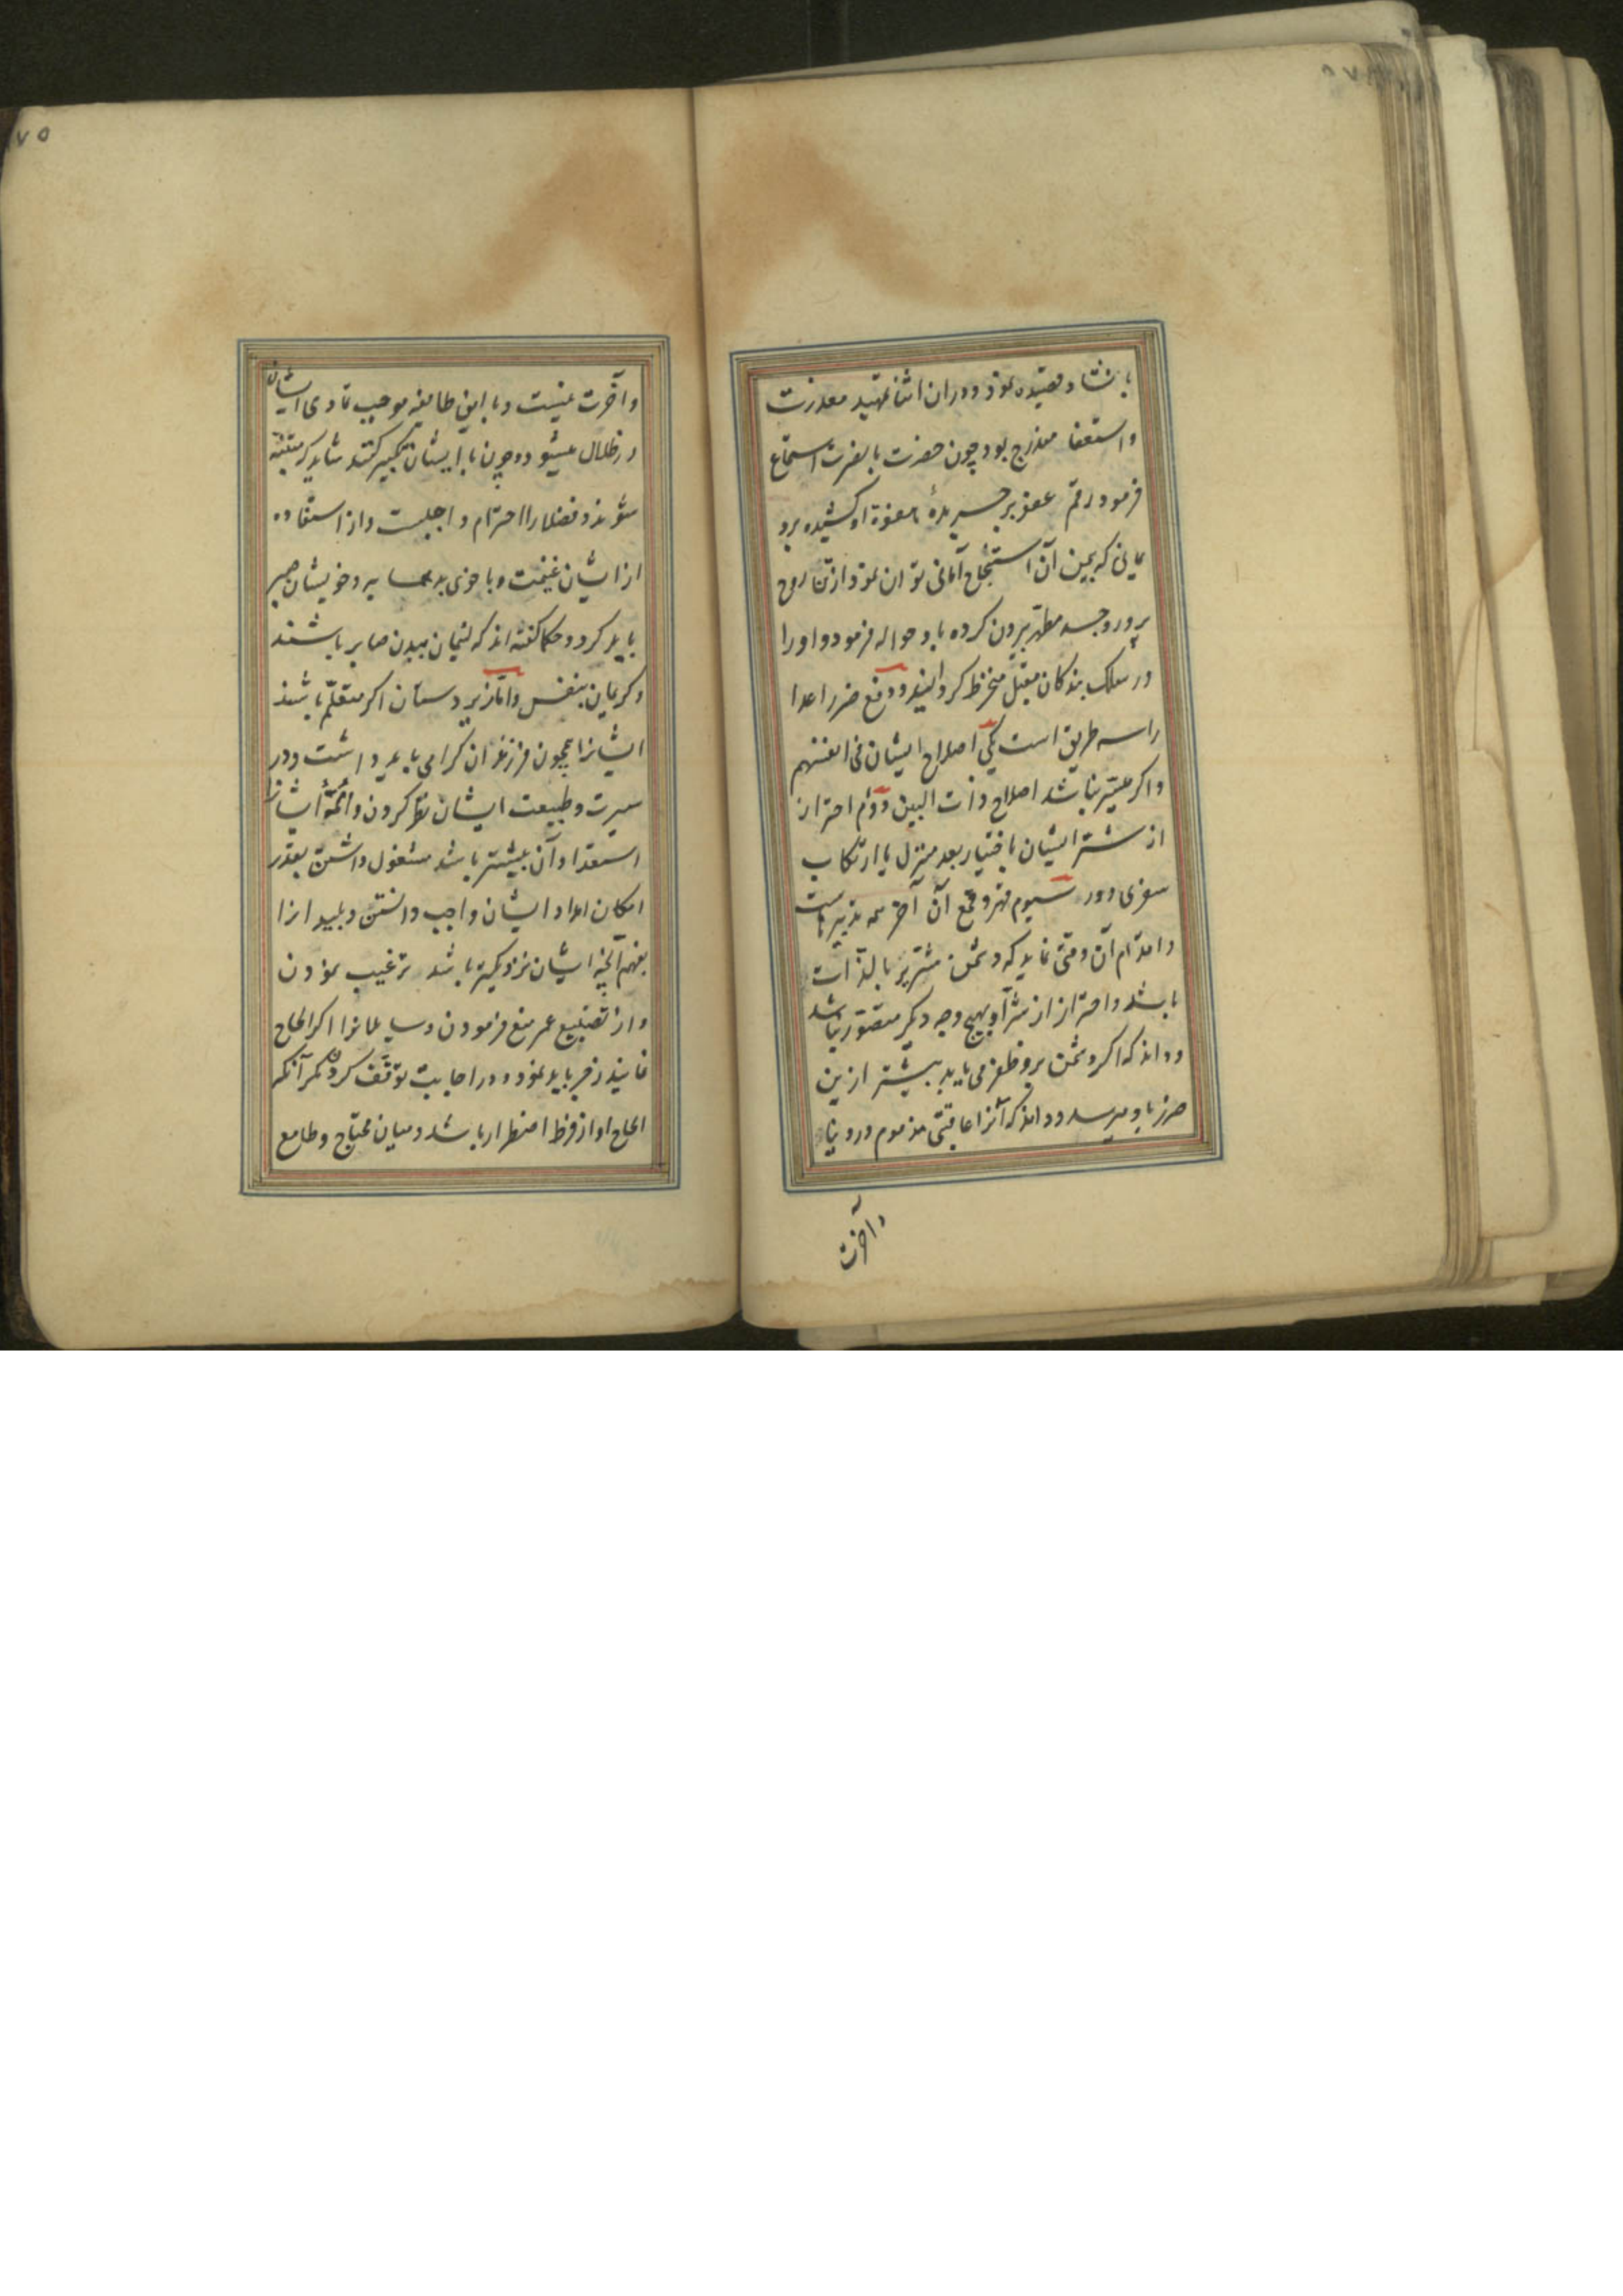 بانشاد قصیده نمود و در ان اثنا تمهید معذرت
و استعفا مندرج بود چون حضرت بالضرت استماع
فرمود رقم عفو بر جریدهٔ هفوة او کشیده برد
یمانی که بیمن آن استنجاح آمانی توان نمود از تن روح
پرور و جسد مطهر بیرون کرده باو حواله فرمود و او را
در سلک بندکان مقبل منخرط کردانید و دفع ضرر اعدا
را سه طریق است یکی اصلاح ایشان فی انفسهم
و اکر میسّر نباشد اصلاح ذات البین دوّم احتراز
از شر ایشان باختیار بعد منزل یا ارتکاب
سفری دور سیوم قهر و قمع آن آخر همه تدبیرهاست
و اقدام آن وقتی نماید که دشمن شریر بالذات
باشد و احتراز از شر او بهیچ وجه دیکر متصوّر نباشد
و داند که اکر دشمن برو ظفر می یابد بیشتر ازین
ضرر باو میرسد و داند که آنرا عاقبتی مذموم در دنیا
و آخرت
۷۵
و آخرت نیست و با این طایفه موجب تمادی ایشان
در ظلال میشود و چون با ایشان تکبر کنند شاید که متنبّه
شوند و فضلا را احترام واجبست و از استفاده
از ایشان غنیمت و با خوی بد همسایه و خویشان صبر
باید کرد و حکما کفته اند که لئیمان ببدن صابر باشند
و کریمان بنفس و اما زیردستان اکر متعلّم باشند
ایشانرا همچون فرزندان کرامی باید داشت و در
سیرت و طبیعت ایشان نظر کردن و آنچه ایشانرا
استعداد آن بیشتر باشد مشغول داشتن بقدر
امکان امداد ایشان واجب دانستن و بلید انرا
بفهم آنچه ایشان نزدیکتر باشد ترغیب نمودن
و از تضییع عمر منع فرمودن و سایلانرا اکر الحاح
نمایند زجر باید نمود و در اجابت توقّف کردن مکر آنکه
الحاح او از فرط اضطرار باشد و میان محتاج و طامع